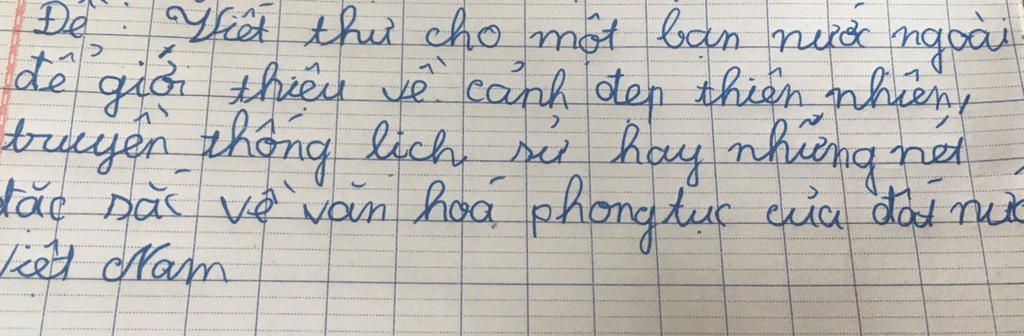 Đề : Viết thư cho một bạn nước ngoài
để giới thiệu về cảnh đẹp thiên nhiên,
truyền thống lịch sử hay những nét
đặc sắc về văn hoá phong tục của đất nước
Việt Nam